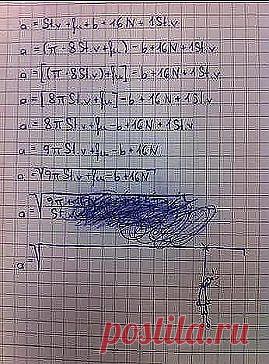 a = St.v + fu + b + 16N + 1St.v
a = (π · 8St.v + fu) = b + 16N + 1St.v
a = [(π · 8St.v + fu] = b + 16N + 1St.v
a = [8πSt.v + fu] = b + 16N + 1St.v
a = 8πSt.v + fu = b + 16N + 1St.v
a = 9πSt.v + fu = b + 16N
a = √9πSt.v + fu = b + 16N
a = √
a √
postila.ru